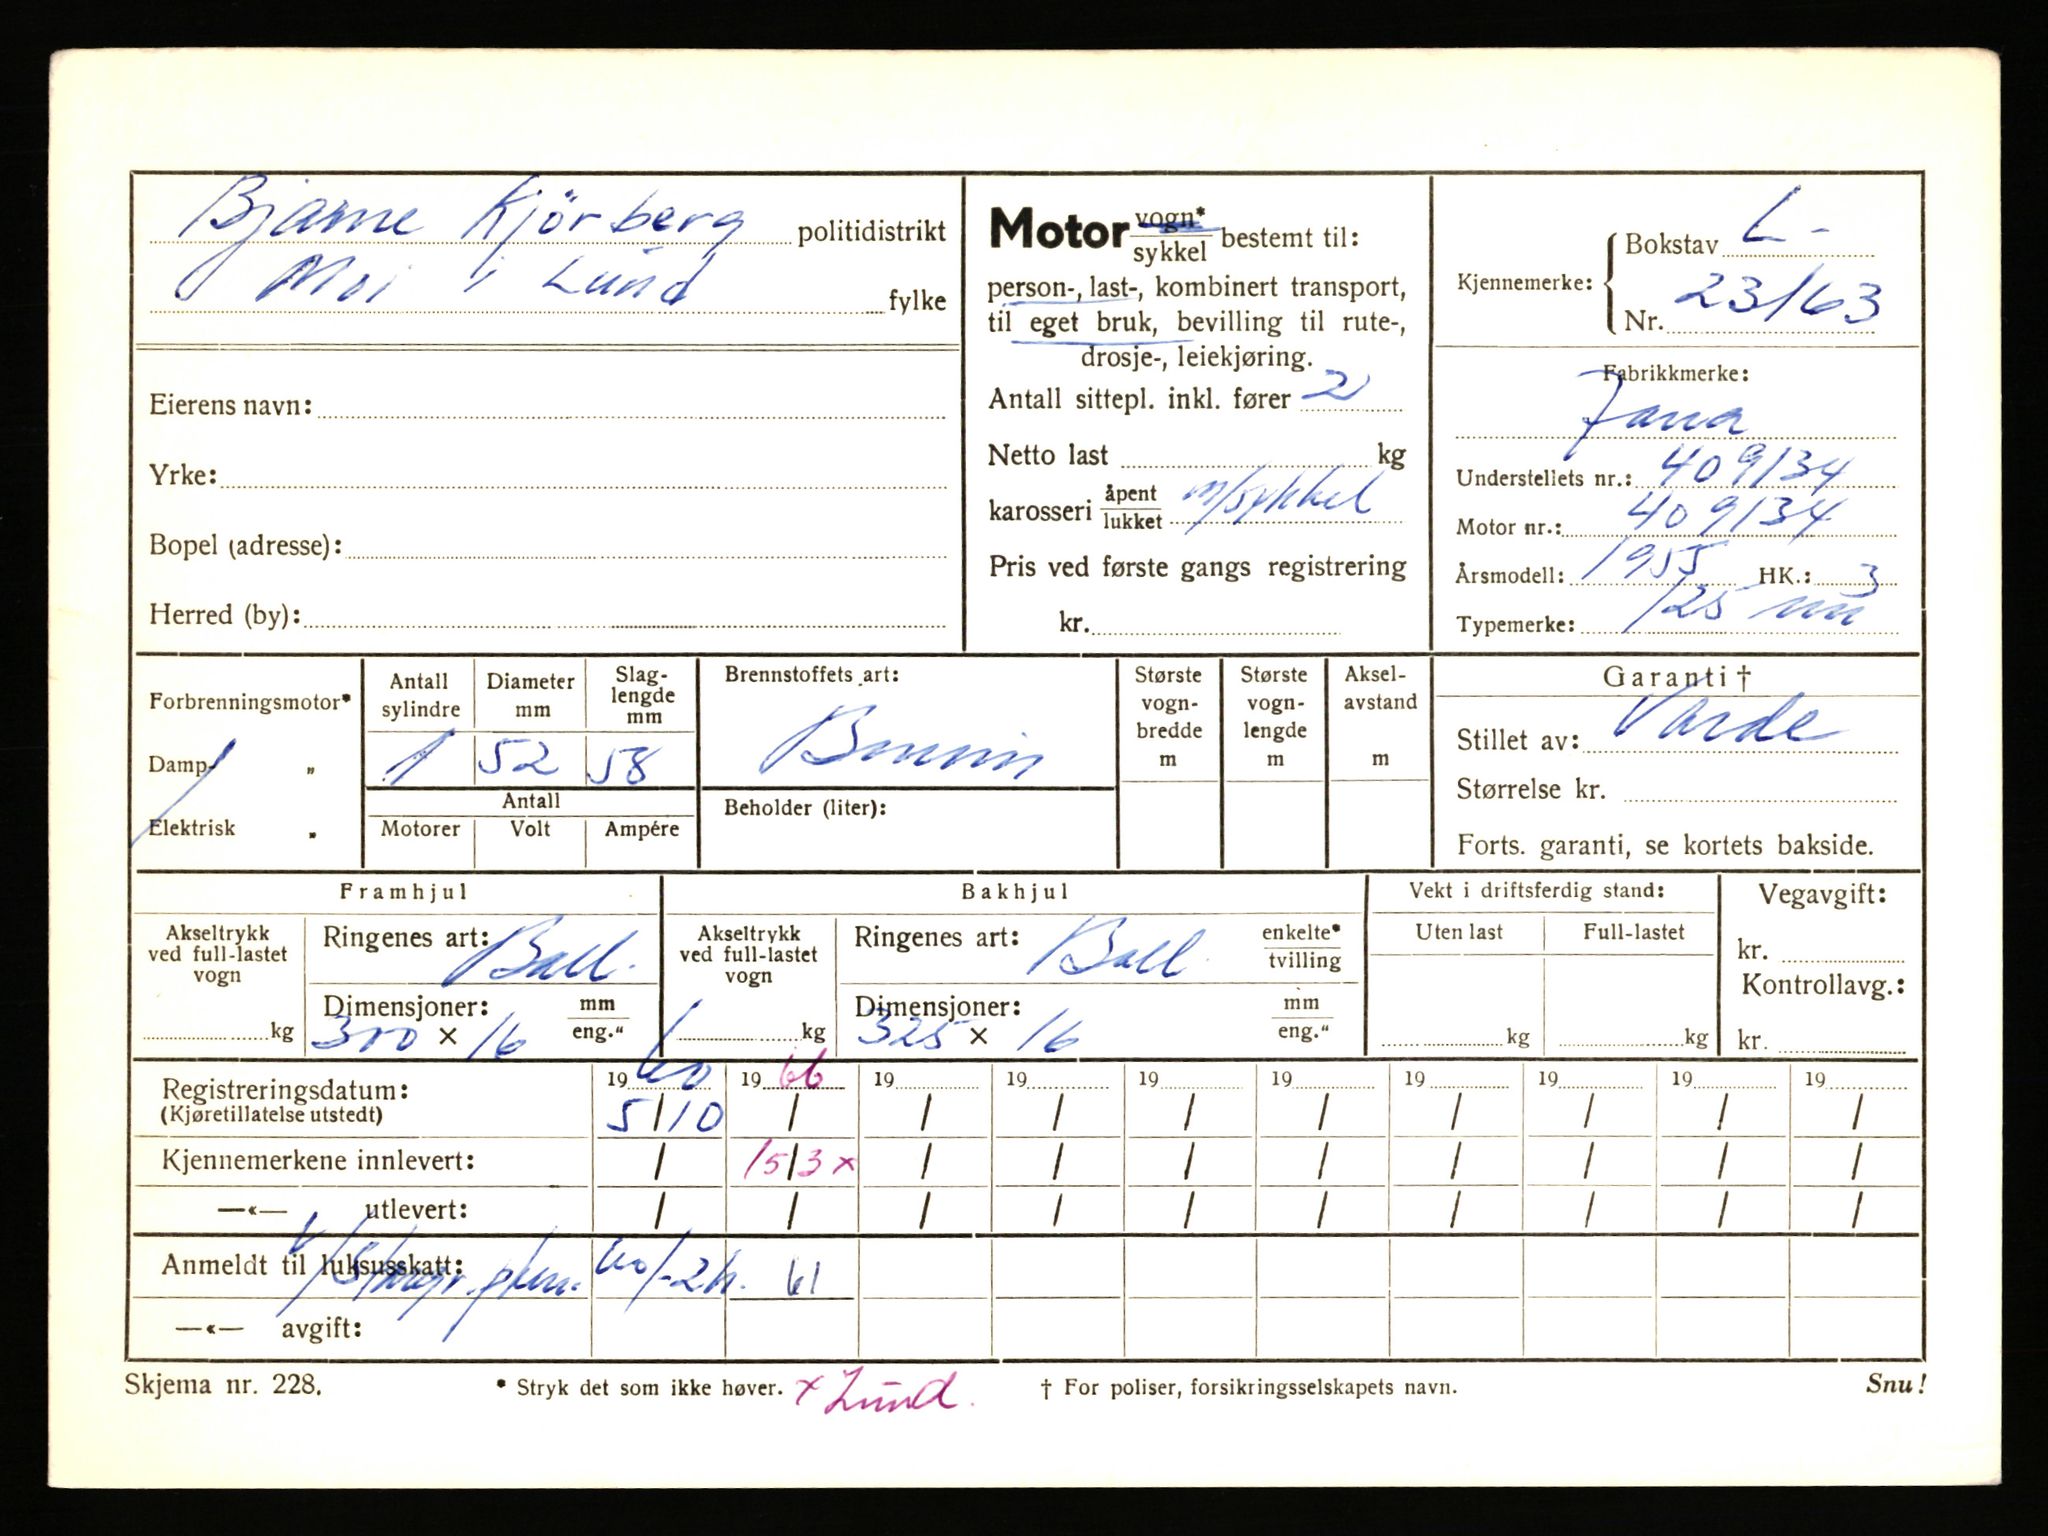 Bjarne Kjörberg politidistrikt
Moi i Lund fylke
Eierens navn:
Yrke:
Bopel (adresse):
Herred (by):
Motor vogn*
sykkel bestemt til:
person-, last-, kombinert transport,
til eget bruk, bevilling til rute-,
drosje-, leiekjøring.
Antall sittepl. inkl. fører 2
Netto last kg
karosseri åpent
lukket m/sykkel
Pris ved første gangs registrering
kr.
Kjennemerke: Bokstav L-
Nr. 23163
Fabrikkmerke:
Jawa
Understellets nr.: 409134
Motor nr.: 409134
Årsmodell: 1955 HK.: 3
Typemerke: 125
Forbrenningsmotor*
Damp- „
Elektrisk „
Antall sylindre Diameter mm Slag-lengde mm
1 52 58
Antall
Motorer Volt Ampére
Brennstoffets art:
Bensin
Beholder (liter):
Største vogn-bredde m
Største vogn-lengde m
Aksel-avstand m
Garanti †
Stillet av: Varde
Størrelse kr.
Forts. garanti, se kortets bakside.
Framhjul
Akseltrykk ved full-lastet vogn kg
Ringenes art: Ball.
Dimensjoner: mm
300 × 16 eng."
Bakhjul
Akseltrykk ved full-lastet vogn kg
Ringenes art: Ball. enkelte*
tvilling
Dimensjoner: mm
325 × 16 eng."
Vekt i driftsferdig stand:
Uten last Full-lastet
kg kg
Vegavgift:
kr.
Kontrollavg.:
kr.
Registreringsdatum: 1960 1966 19 19 19 19 19 19 19 19
(Kjøretillatelse utstedt) 5/10 / / / / / / / / /
Kjennemerkene innlevert: / 15/3 x / / / / / / / /
—«— utlevert: / / / / / / / / / /
Anmeldt til luksusskatt: 60/-2h. 61
—«— avgift:
Skjema nr. 228. * Stryk det som ikke høver. x Lund. † For poliser, forsikringsselskapets navn. Snu!